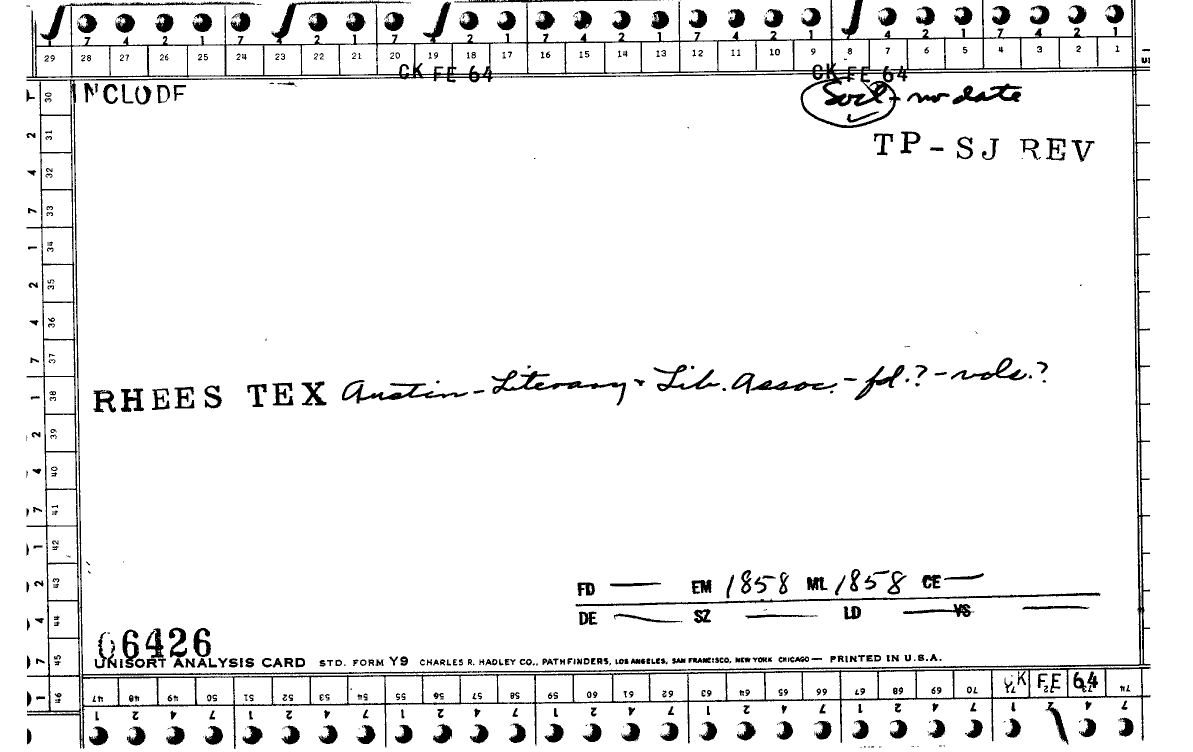 7 4 2 1 7 2 1 7 2 1 7 4 2 1 7 4 2 1 7 4 2 1 7 4 2 1
29 28 27 26 25 24 23 22 21 20 19 18 17 16 15 14 13 12 11 10 9 8 7 6 5 4 3 2 1
CK FE 64 CK FE 64
NCLODF Socl - no date
TP-SJ REV
30
2 31
4 32
7 33
1 34
2 35
4 36
7 37
RHEES TEX Austin - Literary & Lib. Assoc. - fd.? - vols.?
1 38
2 39
4 40
7 41
1 42
2 43
4 44
7 45
1 46
FD — EM 1858 ML 1858 CE —
DE — SZ — LD — VS —
06426
UNISORT ANALYSIS CARD STD. FORM Y9 CHARLES R. HADLEY CO., PATHFINDERS, LOS ANGELES, SAN FRANCISCO, NEW YORK CHICAGO — PRINTED IN U.S.A.
CK FE 64
47 48 49 50 51 52 53 54 55 56 57 58 59 60 61 62 63 64 65 66 67 68 69 70 71 72 73 74
1 2 4 7 1 2 4 7 1 2 4 7 1 2 4 7 1 2 4 7 1 2 4 7 1 2 4 7